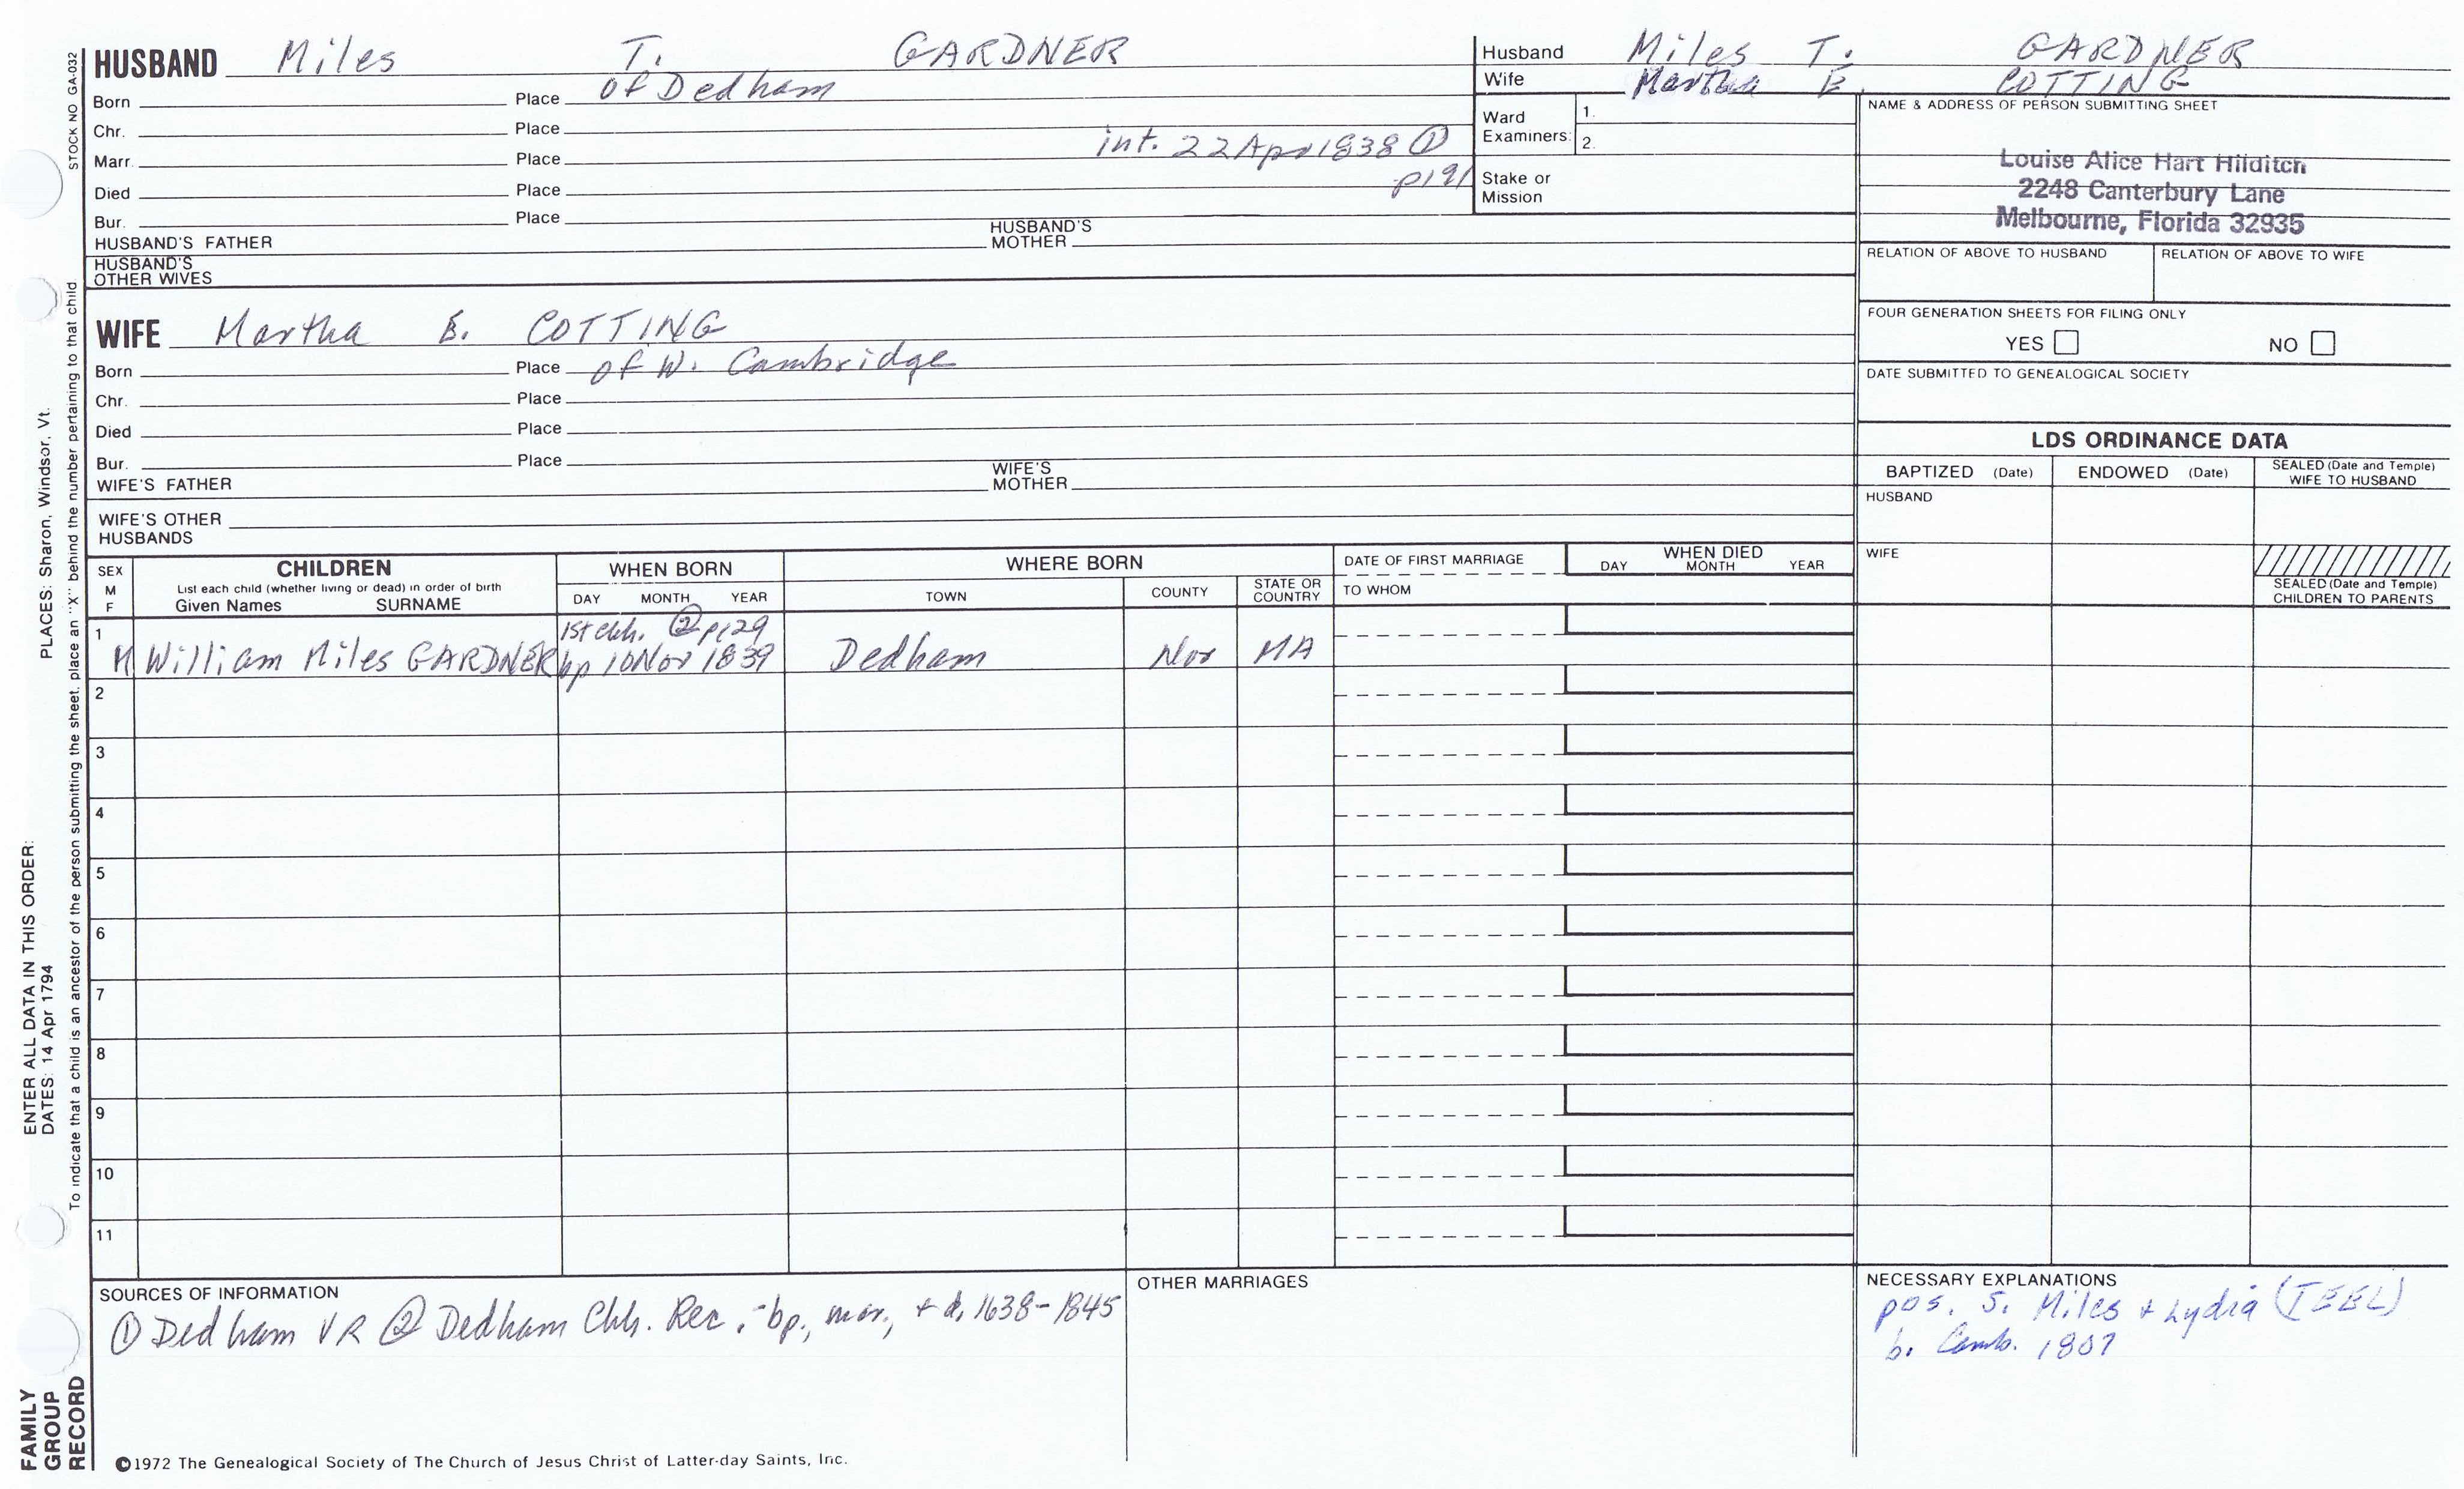 HUSBAND Miles T. GARDNER
Born Place of Dedham
Chr. Place
Marr. Place int. 22 Apr 1838 ①
p191
Died Place
Bur. Place
HUSBAND'S FATHER HUSBAND'S MOTHER
HUSBAND'S OTHER WIVES
Husband Miles T. GARDNER
Wife Martha E. COTTING
Ward Examiners: 1.
2.
Stake or Mission
NAME & ADDRESS OF PERSON SUBMITTING SHEET
Louise Alice Hart Hilditch
2248 Canterbury Lane
Melbourne, Florida 32935
RELATION OF ABOVE TO HUSBAND RELATION OF ABOVE TO WIFE
FOUR GENERATION SHEETS FOR FILING ONLY
YES NO
DATE SUBMITTED TO GENEALOGICAL SOCIETY
WIFE Martha E. COTTING
Born Place of W. Cambridge
Chr. Place
Died Place
Bur. Place
WIFE'S FATHER WIFE'S MOTHER
WIFE'S OTHER HUSBANDS
LDS ORDINANCE DATA
BAPTIZED (Date) ENDOWED (Date) SEALED (Date and Temple) WIFE TO HUSBAND
HUSBAND
WIFE
SEALED (Date and Temple) CHILDREN TO PARENTS
SEX M F
CHILDREN
List each child (whether living or dead) in order of birth
Given Names SURNAME
WHEN BORN
DAY MONTH YEAR
WHERE BORN
TOWN COUNTY STATE OR COUNTRY
DATE OF FIRST MARRIAGE
TO WHOM
WHEN DIED
DAY MONTH YEAR
1 1st chh. ② p129
M William Miles GARDNER bp 10 Nov 1839 Dedham Nor MA
2
3
4
5
6
7
8
9
10
11
SOURCES OF INFORMATION
① Dedham VR ② Dedham Chh. Rec.; bp., mar., + d. 1638-1845
OTHER MARRIAGES
NECESSARY EXPLANATIONS
pos. s. Miles + Lydia (TEEL)
b. Camb. 1807
©1972 The Genealogical Society of The Church of Jesus Christ of Latter-day Saints, Inc.
FAMILY GROUP RECORD
ENTER ALL DATA IN THIS ORDER:
DATES: 14 Apr 1794 PLACES: Sharon, Windsor, Vt.
To indicate that a child is an ancestor of the person submitting the sheet, place an "X" behind the number pertaining to that child.
STOCK NO GA-032